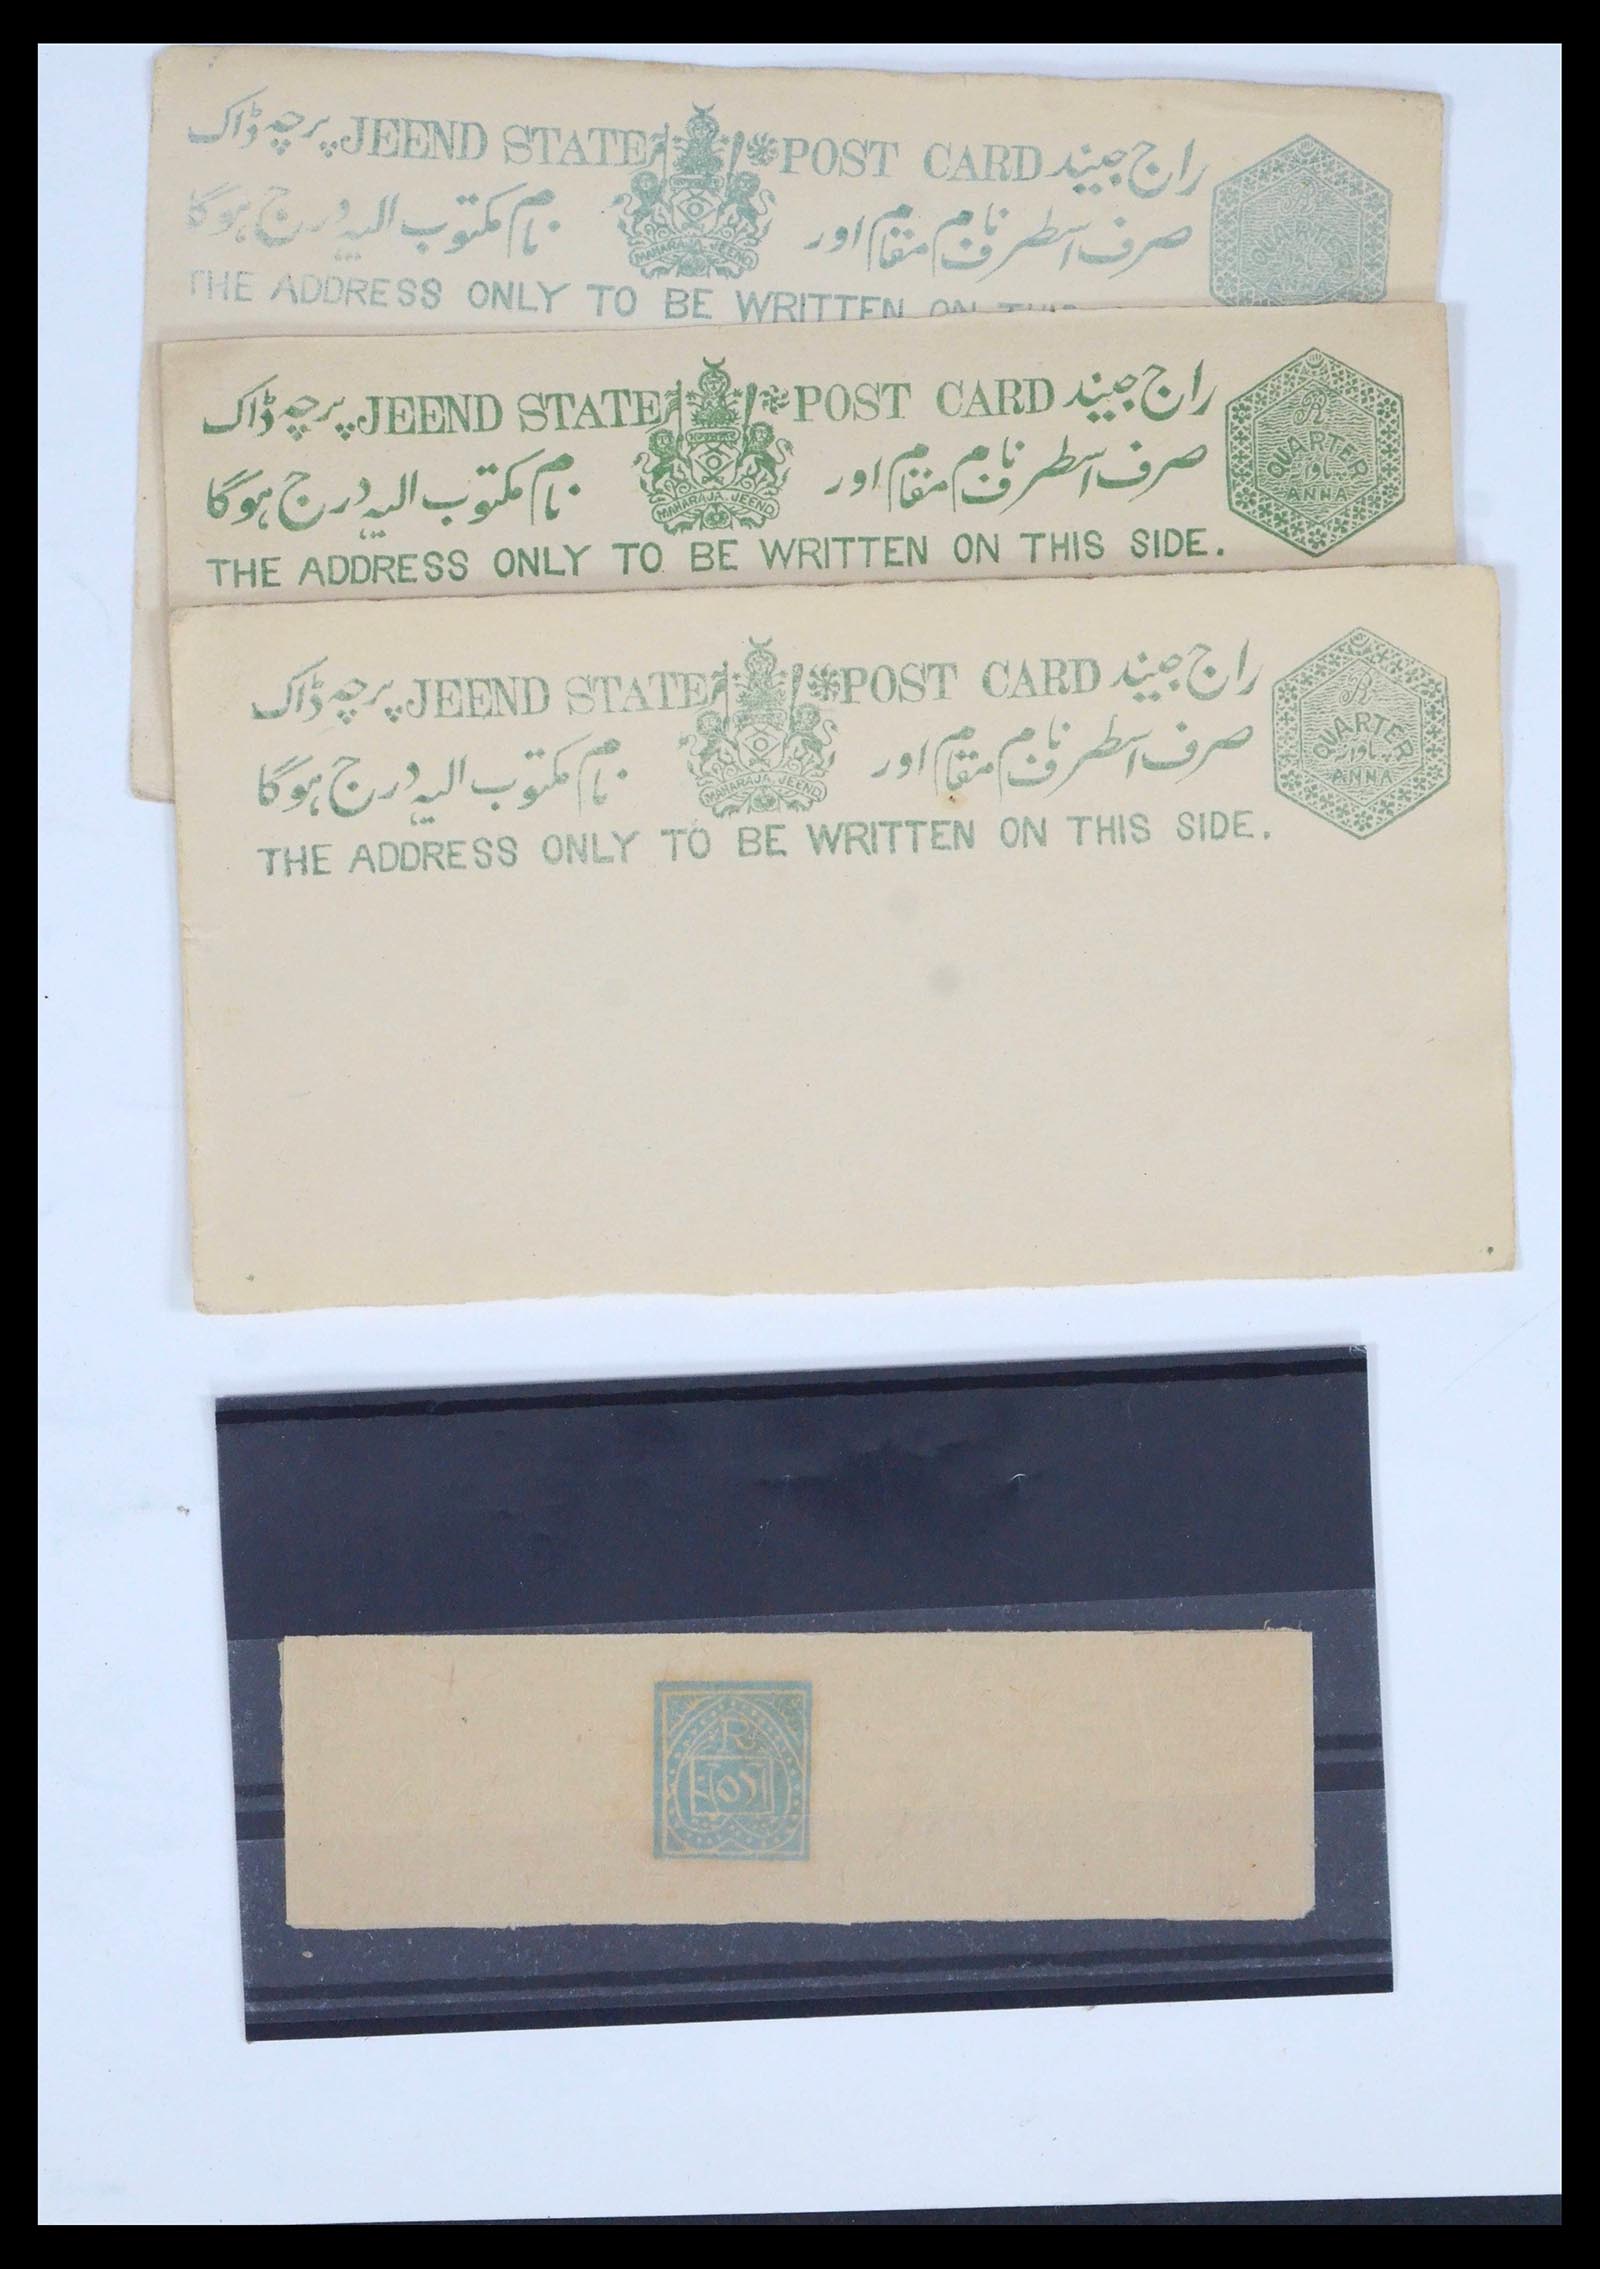 پرچہ ڈاک JEEND STATE POST CARD راج جیند
صرف اسطرف نام مقام اور نام مکتوب الیہ درج ہوگا
MAHARAJA JEEND
THE ADDRESS ONLY TO BE WRITTEN ON THIS
R
QUARTER
پاو
ANNA
پرچہ ڈاک JEEND STATE POST CARD راج جیند
صرف اسطرف نام مقام اور نام مکتوب الیہ درج ہوگا
MAHARAJA JEEND
THE ADDRESS ONLY TO BE WRITTEN ON THIS SIDE.
R
QUARTER
پاو
ANNA
پرچہ ڈاک JEEND STATE POST CARD راج جیند
صرف اسطرف نام مقام اور نام مکتوب الیہ درج ہوگا
MAHARAJA JEEND
THE ADDRESS ONLY TO BE WRITTEN ON THIS SIDE.
R
QUARTER
پاو
ANNA
R